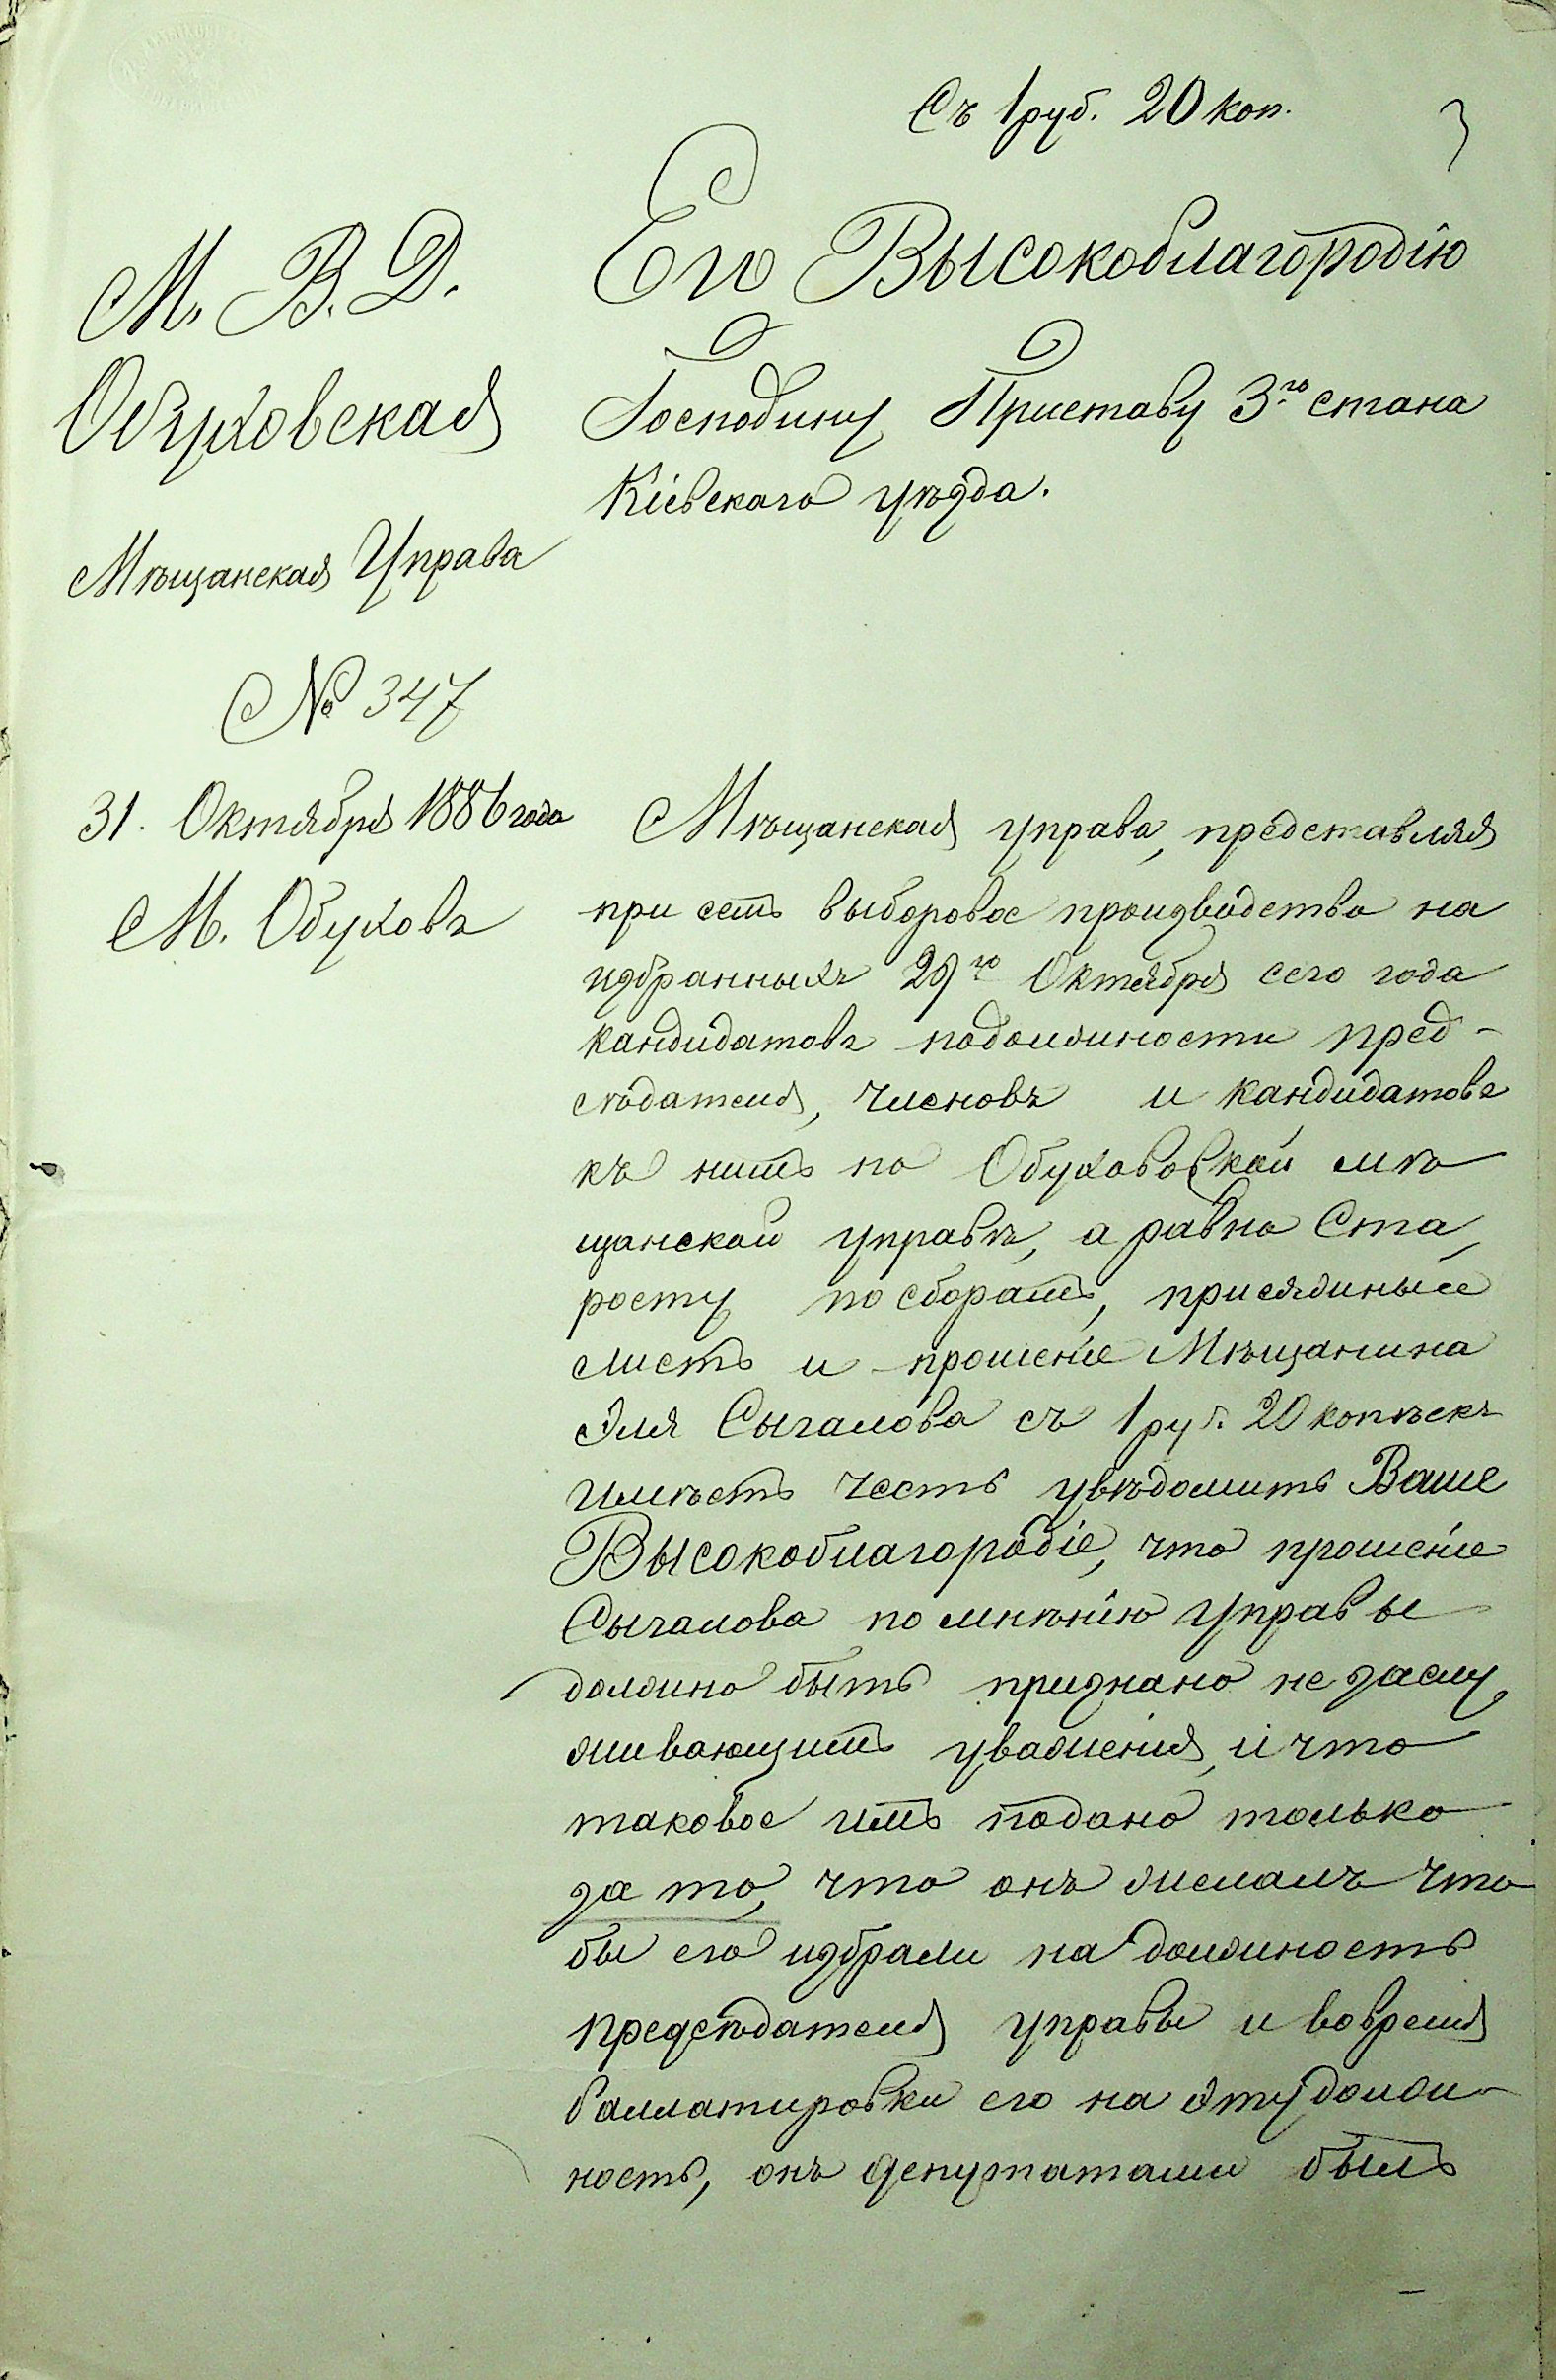 Съ 1 руб. 20 коп.
М. В. Д.
Обуховская
Мѣщанская Управа
№ 347
31. Октября 1886 года
М. Обуховъ
Его Высокоблагородію
Господину Приставу 3го стана
Кіевскаго уѣзда.
Мѣщанская управа, представляя
при семъ выборовое производство на
избранныхъ 29го Октября сего года
кандидатовъ подолжности пред-
сѣдателя, членовъ и кандидатовъ
къ нимъ по Обуховской мѣ
щанской управѣ, а равно Ста
росту по сборамъ, присяжные
листъ и прошеніе Мѣщанина
Эля Сыгалова съ 1 руб. 20 копѣекъ
имѣетъ честь увѣдомить Ваше
Высокоблагородіе, что прошеніе
Сыгалова по мнѣнію Управы
должно быть признано не заслу
живающимъ уваженія, и что
таковое имъ подано только
за то, что онъ желалъ что
бы его избрали на должность
предсѣдателя управы и вовремя
баллатировки его на эту долж-
ность, онъ депутатами былъ